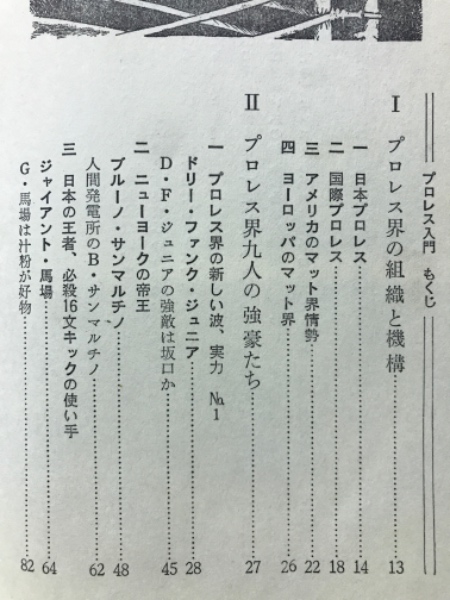 プロレス入門 もくじ
Ⅰ プロレス界の組織と機構……13
一 日本プロレス……14
二 国際プロレス……18
三 アメリカのマット界情勢……22
四 ヨーロッパのマット界……26
Ⅱ プロレス界九人の強豪たち……27
一 プロレス界の新しい波、実力 №1
ドリー・ファンク・ジュニア……28
D・F・ジュニアの強敵は坂口か……45
二 ニューヨークの帝王
ブルーノ・サンマルチノ……48
人間発電所のB・サンマルチノ……62
三 日本の王者、必殺16文キックの使い手
ジャイアント・馬場……64
G・馬場は汁粉が好物……82